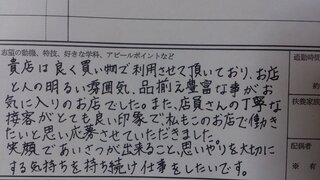 志望の動機、特技、好きな学科、アピールポイントなど
貴店は良く買い物で利用させて頂いており、お店
とんの明るい雰囲気、品揃え豊富な事がお
気に入りのお店でした。また、店員さんの丁寧な
接客がとても良い印象で私もこのお店で働き
たいと思い応募させていただきました。
笑顔であいさつが出来ること、思いやりを大切に
する気持ちを持ち続け仕事をしたいです。
通勤時間
約
扶養家族
配偶者
※ 有